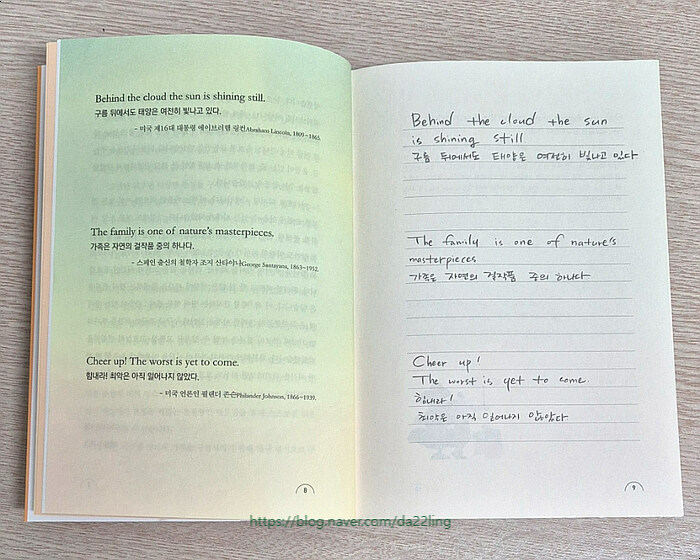 Behind the cloud the sun is shining still.
구름 뒤에서도 태양은 여전히 빛나고 있다.
- 미국 제16대 대통령 에이브러햄 링컨Abraham Lincoln, 1809~1865.
The family is one of nature's masterpieces.
가족은 자연의 걸작품 중의 하나다.
- 스페인 출신의 철학자 조지 산타야나George Santayana, 1863~1952.
Cheer up! The worst is yet to come.
힘내라! 최악은 아직 일어나지 않았다.
- 미국 언론인 필랜더 존슨Philander Johnson, 1866~1939.
8
Behind the cloud the sun
is shining still
구름 뒤에서도 태양은 여전히 빛나고 있다
The family is one of nature's
masterpieces
가족은 자연의 걸작품 중의 하나다
Cheer up!
The worst is yet to come.
힘내라!
최악은 아직 일어나지 않았다
9
https://blog.naver.com/da22ling